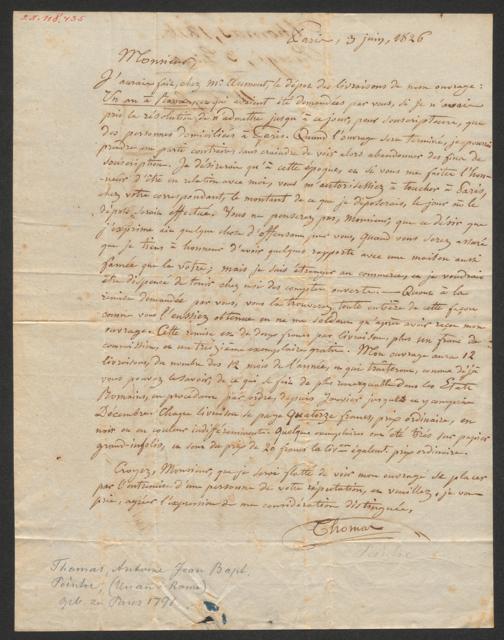 28.118.435
Paris, 3 juin, 1826
Monsieur
J'aurais fait, chez Mr Aumont, le dépôt des livraisons de mon ouvrage:
Un an à Rome, qui avaient été demandées par vous, si je n'avais
pris la résolution de n'admettre jusqu'à ce jour, pour souscripteurs, que
des personnes domiciliées à Paris. Quand l'ouvrage sera terminé, je pourrai
prendre un parti contraire, sans craindre de voir alors abandonner des fins de
souscription. Je désirerais qu'à cette époque, si vous me faites l'hon-
neur d'être en relation avec moi, vous m'autorisassiez à toucher à Paris,
chez votre correspondant, le montant de ce que je déposerais, le jour où le
dépôt serait effectué. Vous ne penserez pas, Monsieur, que ce désir que
j'exprime ait quelque chose d'offensant pour vous, quand vous serez assuré
que je tiens à honneur d'avoir quelques rapports avec une maison aussi
famée que la vôtre; mais je suis étranger au commerce, et je voudrais
être dispensé de tenir chez moi des comptes ouverts. — Quant à la
remise demandée par vous, vous la trouverez toute entière de cette façon
comme vous l'eussiez obtenue en ne me soldant qu'après avoir reçu mon
ouvrage. Cette remise est de deux francs par livraison, plus un franc de
commission, et un treizième exemplaire gratis. Mon ouvrage aura 12
livraisons, du nombre des 12 mois de l'année, et qui traiteront, comme déjà
vous pouvez le savoir, de ce qui se fait de plus remarquable dans les Etats
Romains, en procédant par ordre, depuis Janvier jusques et y compris
Décembre. Chaque livraison se paye quatorze francs, prix ordinaire, en
noir ou en couleur indifféremment. Quelques exemplaires ont été tirés sur papier
grand-infolio, et sont du prix de 20 francs la livon également prix ordinaire.
Croyez, Monsieur, que je serai flatté de voir mon ouvrage se placer
par l'entremise d'une personne de votre réputation, et veuillez, je vous
prie, agréer l'expression de ma considération distinguée,
Thomas
Peintre
Thomas, Antoine Jean Bapt.
Peintre, (Un an à Rome)
geb. zu Paris 1791